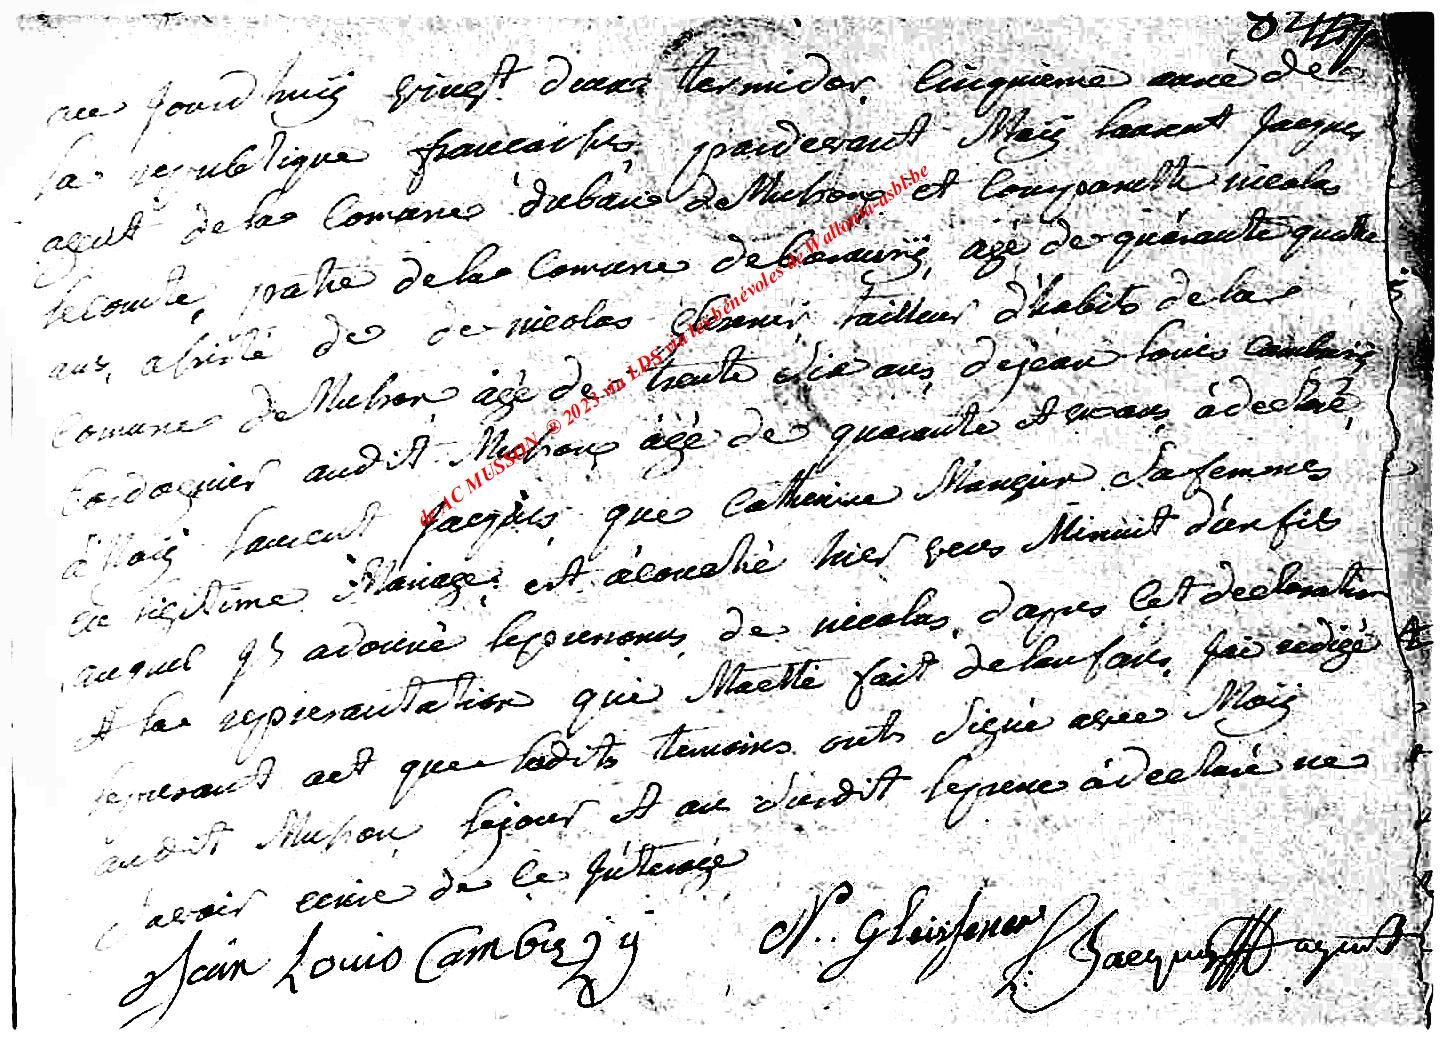 au jourdhuÿ vingt deux termidor, Cinquieme anné de
la republique francaisse, pardevant Moÿ laurent Jacques
agent de la Comune de Musson et Comparette nicolas
lecomte, patre de la Comune de agé de quarante quatre
ans, assisté de de nicolas tailleur d'habits de la
Comune de Musson agé de trente six ans, de jean louis Cambrzÿ
Cordognier audit Musson, agé de quarante et ans, à declaré,
à Moÿ laurent Jacques, que Catherine Mangin Sa femmes
en legitime Mariage, est acouché hier vers Minuit d'un fils
auquel a donné leprenoms, de nicolas, dapres Cet declaration
et la represantation que Matte fait delanfans, jai redigé
lepresant act que ledits temoins onts Signé avec Moÿ
audit Musson, lejour et an Susdit lepere à declaré ne
Savoir ecrire de ce
Jean Louis Cambrzÿ N.. Gleissener L Jacques agent
de AC MUSSON ® 2023 via LDS via les bénévoles de Wallonia-asbl.be